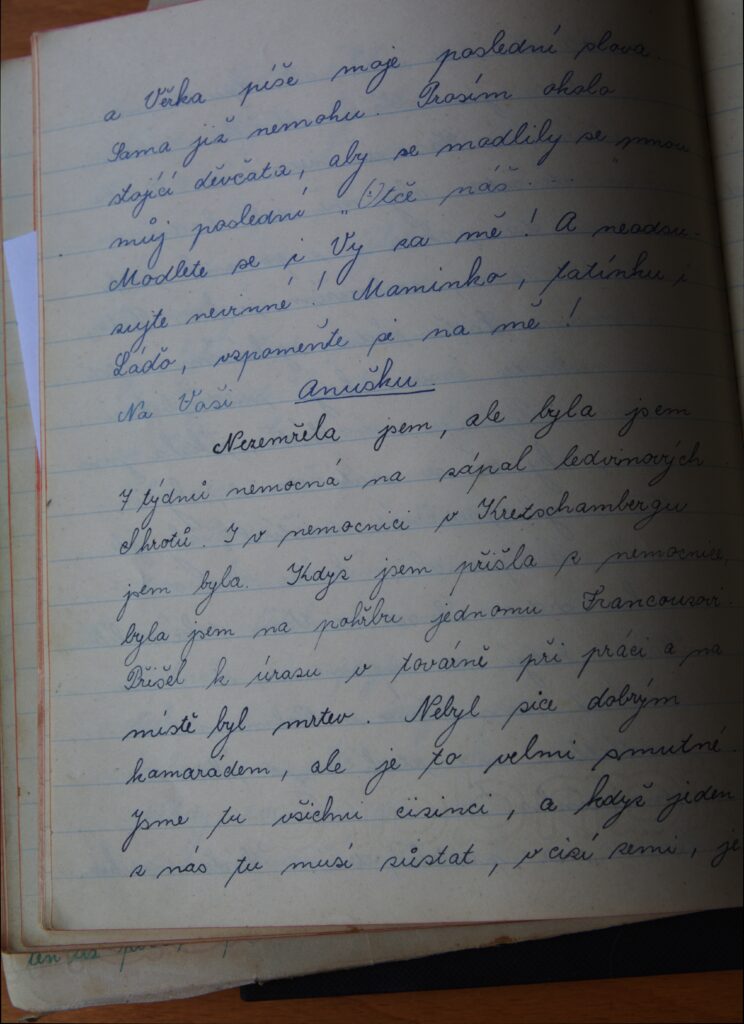 a Věrka píše moje poslední slova.
Sama již nemohu. Prosím okolo
stojící děvčata, aby se modlily se mnou
můj poslední "Otče náš...."
Modlete se i Vy za mě! A neodsu-
zujte nevinné! Maminko, tatínku i
Láďo, vzpomeňte si na mě!
Na Vaši Anušku.
Nezemřela jsem, ale byla jsem
7 týdnů nemocná na zápal ledvinových
Shrotů. I v nemocnici v Kretschambergu
jsem byla. Když jsem přišla z nemocnice,
byla jsem na pohřbu jednomu Francouzovi.
Přišel k úrazu v továrně při práci a na
místě byl mrtev. Nebyl sice dobrým
kamarádem, ale je to velmi smutné.
Jsme tu všichni cizinci, a když jeden
z nás tu musí zůstat, v cizí zemi, je